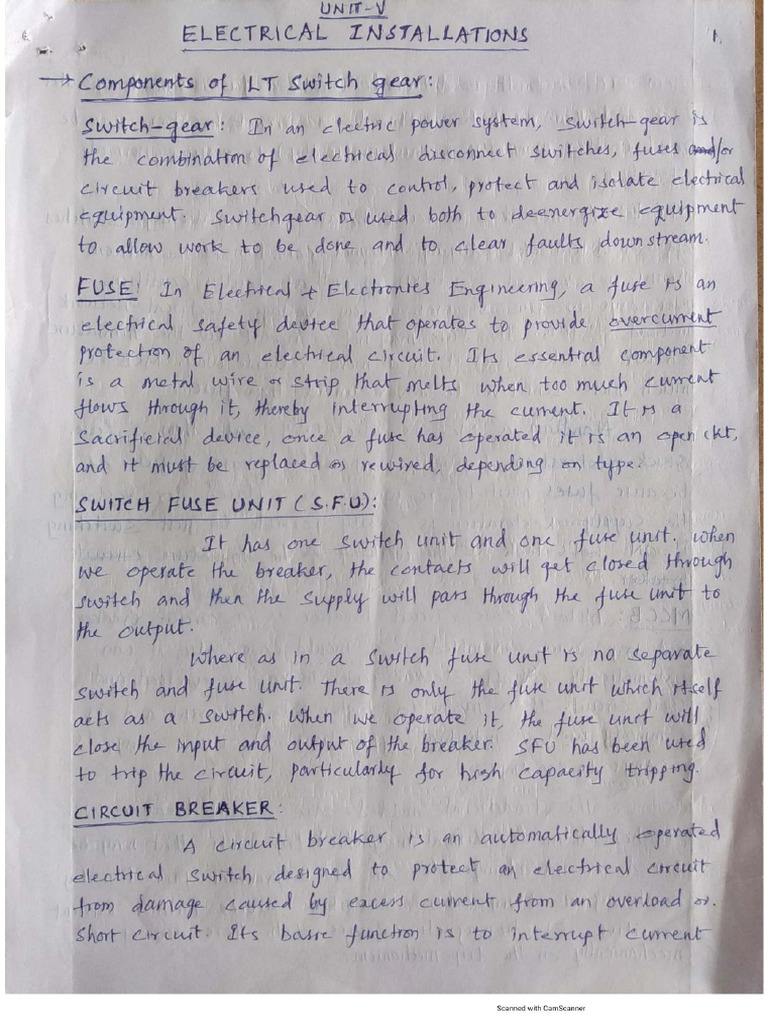 UNIT-V
ELECTRICAL INSTALLATIONS
1.
→ Components of LT Switch gear:
Switch-gear: In an electric power system, Switch-gear is
the combination of electrical disconnect switches, fuses and/or
circuit breakers used to control, protect and isolate electrical
equipment. Switchgear is used both to deenergize equipment
to allow work to be done and to clear faults downstream.
FUSE: In Electrical & Electronics Engineering, a fuse is an
electrical safety device that operates to provide overcurrent
protection of an electrical circuit. Its essential component
is a metal wire or strip that melts when too much current
flows through it, thereby interrupting the current. It is a
Sacrificial device, once a fuse has operated it is an open ckt,
and it must be replaced or rewired, depending on type.
SWITCH FUSE UNIT (S.F.U):
It has one switch unit and one fuse unit. When
we operate the breaker, the contacts will get closed through
switch and then the supply will pass through the fuse unit to
the output.
Where as in a switch fuse unit is no separate
switch and fuse unit. There is only the fuse unit which itself
acts as a switch. When we operate it, the fuse unit will
close the input and output of the breaker. SFU has been used
to trip the circuit, particularly for high capacity tripping.
CIRCUIT BREAKER:
A circuit breaker is an automatically operated
electrical switch designed to protect an electrical circuit
from damage caused by excess current from an overload or
short circuit. Its basic function is to interrupt current
Scanned with CamScanner